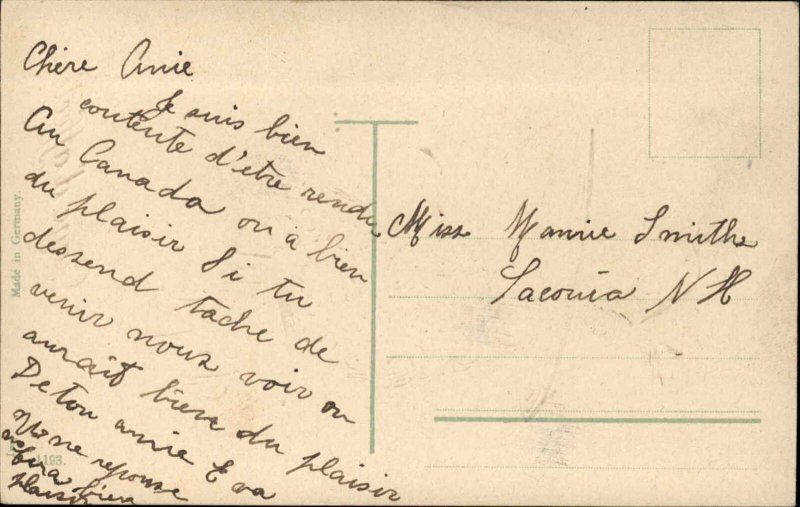 Chère Amie
Je suis bien
contente d'être rendu
Au Canada on a bien
du plaisir Si tu
dessend tache de
venir nous voir on
aurait bien du plaisir
De ton amie Eva
Une reponse
me fera bien
plaisir
Miss Mamie Smithe
Laconia NH
Made in Germany.
1193.